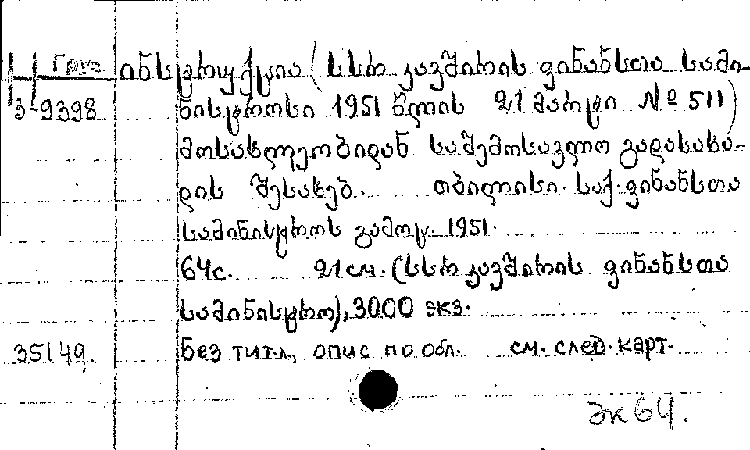 Груз ინსტრუქცია (სსრ კავშირის ფინანსთა სამი-
3-9398 ნისტროსი 1951 წლის 21 მარტი № 511)
მოსახლეობიდან საშემოსავლო გადასახა-
დის შესახებ. თბილისი. საქ. ფინანსთა
სამინისტროს გამოც. 1951.
64с. 21см. (სსრ კავშირის ფინანსთა
სამინისტრო), 3000 экз.
35149. без тит.л., опис по обл. см. след. карт.
Эк 64.